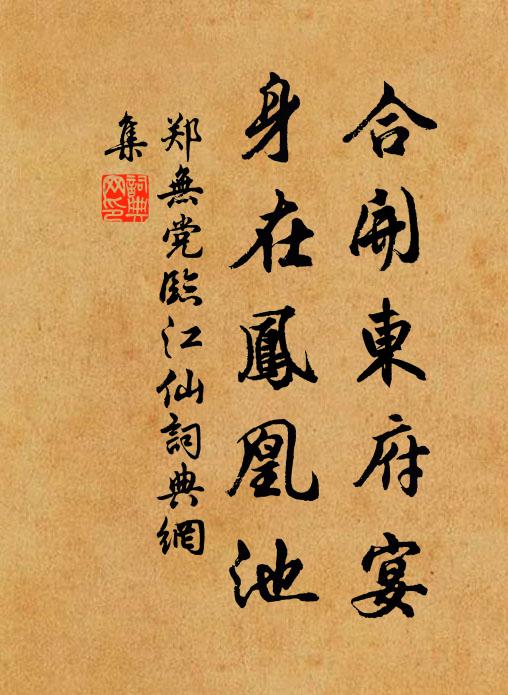 合開東府宴
身在鳳凰池
郑無党臨江仙詞典網
集
詞典网印